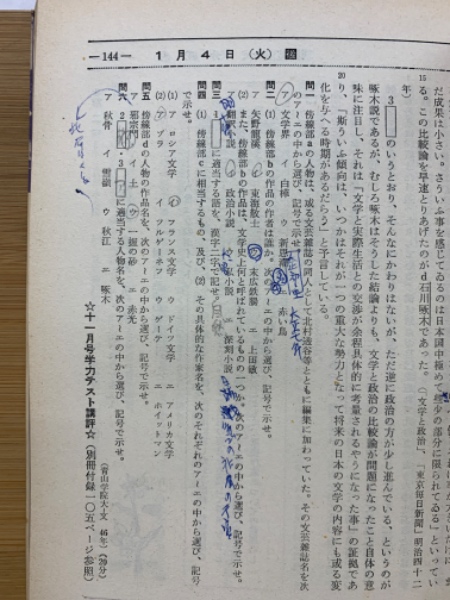 —144— 1月4日(火)
だ成果は小さい。さういふ事を感じてゐるのは日本国中極めて少の部分に限られてゐる」といってい
る。この比較論を早速とりあげたのがd石川啄木であった。(「文学と政治」、「東京毎日新聞」明治四十二
年)
15
3 のいうとおり、そんなにかわりはないが、ただ逆に政治の方が少し進んでいる、というのが
啄木説であるが、むしろ啄木はそうした結論よりも、文学と政治の比較論が問題になったこと自体の意
味に注目し、それは「文学と実際生活との交渉が余程具体的に考量されるやうになった事」の証拠であ
り、「斯ういふ傾向は、いつかはそれが一つの重大な勢力となって将来の日本の文学の内容にも或る変
20
化を与へる時期があるだらう」と予言している。
問一 傍線部aの人物は、或る文芸雑誌の同人として北村透谷等とともに編集に加わっていた。その文芸雑誌名を次
のア〜エの中から選び、記号で示せ。
ア 文学界 イ 白樺 ウ 新思潮 エ 赤い鳥
問二 (1) 傍線部bの作品の作者は誰か。次のア〜エの中から選び、記号で示せ。
ア 矢野龍溪 イ 東海散士 ウ 末広鉄腸 エ 上田敏
(2) また、傍線部bの作品は、文学史上何と呼ばれているものの一つか。次のア〜エの中から選び、記号で示せ。
ア 翻訳小説 イ 政治小説 ウ 小説 エ 深刻小説
問三 1 に適当する語を、漢字二字で記せ。
問四 (1) 傍線部cに相当するもの、及び、(2) その具体的な作家名を、次のそれぞれのア〜エの中から選び、記号
で示せ。
(1) ア ロシア文学 イ フランス文学 ウ ドイツ文学 エ アメリカ文学
(2) ア ゾラ イ ツルゲーネフ ウ ゲーテ エ ホイットマン
問五 傍線部dの人物の作品名を、次のア〜エの中から選び、記号で示せ。
ア 邪宗門 イ 土 ウ 一握の砂 エ 赤光
問六 2・3 に適当する人物名を、次のア〜エの中から選び、記号で示せ。
ア 秋骨 イ 雪嶺 ウ 秋江 エ 啄木
(青山学院大・文 46年)(20分)
☆十一月号学力テスト講評☆(別冊付録一〇五ページ参照)